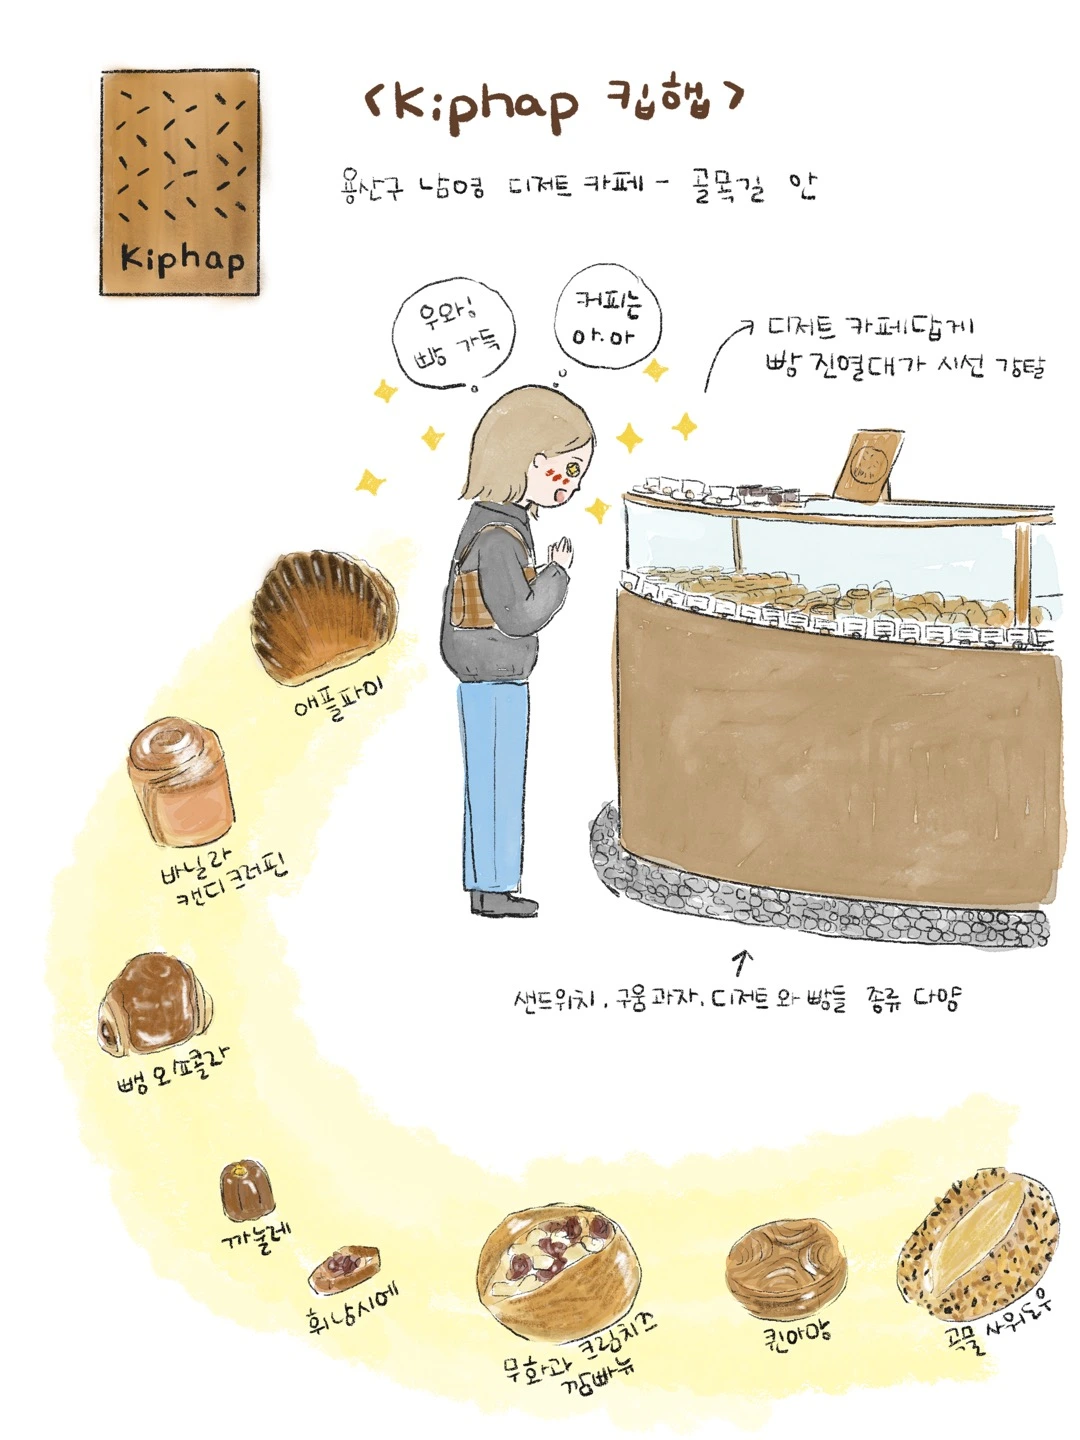 Kiphap
<Kiphap 킵햅>
용산구 남영 디저트 카페 - 골목길 안
우와!
빵 가득
커피는
아.아
디저트 카페답게
빵 진열대가 시선 강탈
애플파이
바닐라
캔디크러핀
뺑오쇼콜라
까눌레
휘낭시에
샌드위치, 구움과자, 디저트와 빵들 종류 다양
무화과 크림치즈
깜빠뉴
퀸아망
곡물 사워도우